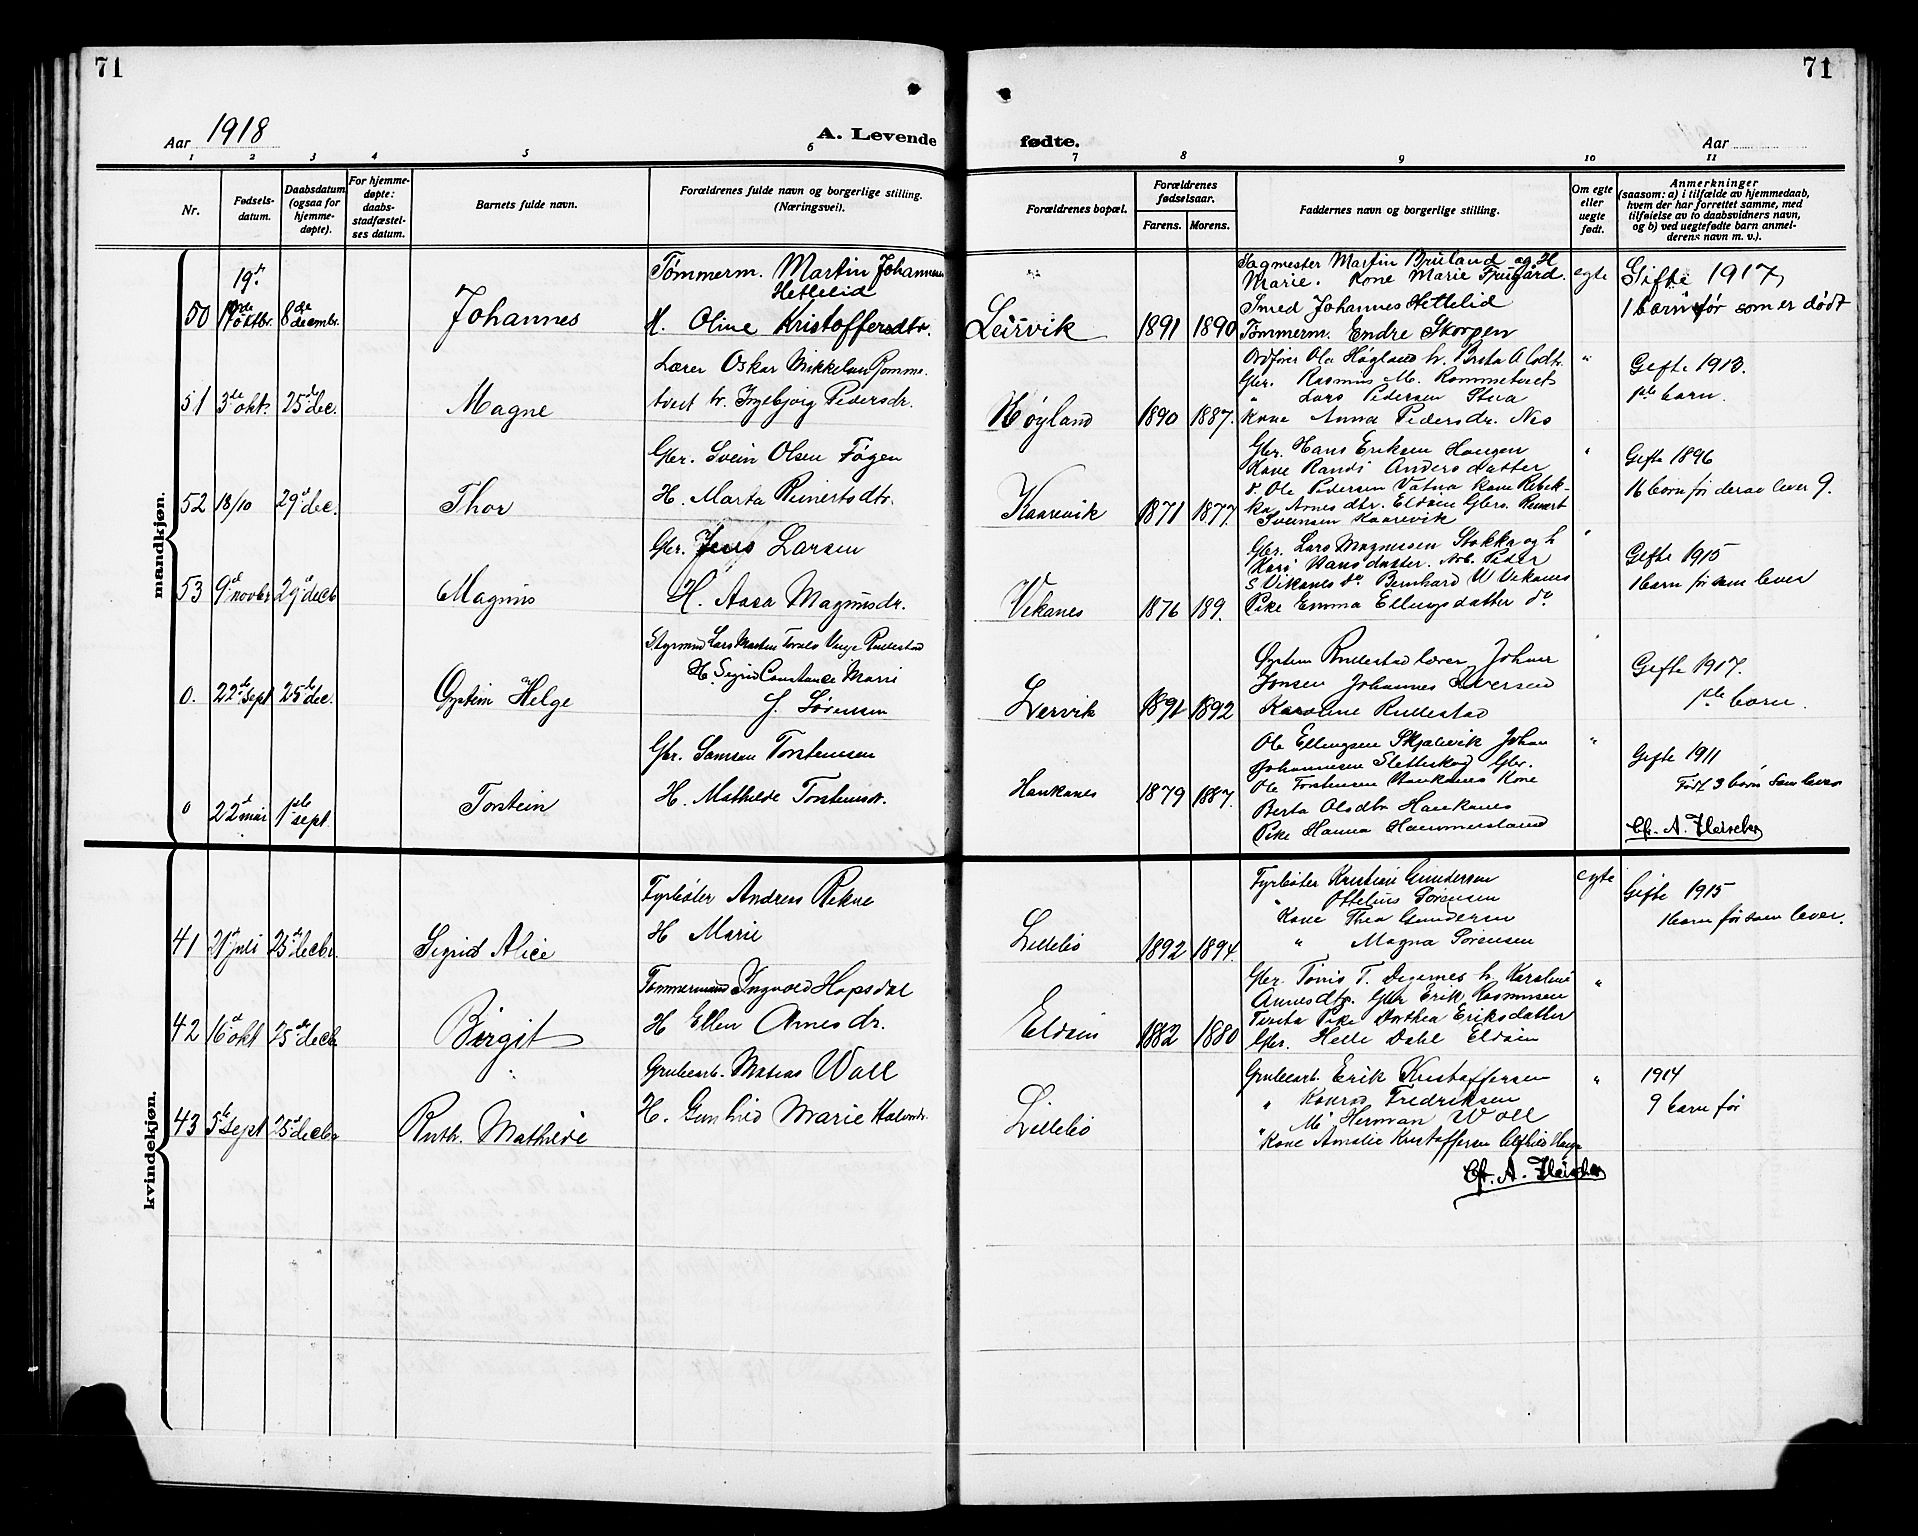 71
71
Aar 1918
A. Levende
fødte.
Aar
1 2 3 4 5 6 7 8 9 10 11
Nr.
Fødsels-
datum.
Daabsdatum
(ogsaa for
hjemme-
døpte).
For hjemme-
døpte:
daabs-
stadfæstel-
ses datum.
Barnets fulde navn.
Forældrenes fulde navn og borgerlige stilling.
(Næringsvei).
Forældrenes bopæl.
Forældrenes
fødselsaar.
Farens. Morens.
Faddernes navn og borgerlige stilling.
Om egte
eller
uegte
født.
Anmerkninger
(saasom: a) i tilfælde av hjemmedaab,
hvem der har forrettet samme, med
tilføielse av to daabsvidners navn,
og b) ved uegtefødte barn anmel-
derens navn m. v.).
mandkjøn.
50
19.
oktbr.
8de
decembr.
Johannes
Tømmerm. Martin Johannessen
Hettelid
H. Oline Kristoffersdtr.
Leirvik
1891 1890
Martin Bruland og H
Marie. Kone Marie
Smed Johannes Hettelid
Tømmerm. Endre Skorpen
egte
Gifte 1917
1 barn før som er dødt
51
3de okt.
25d dec.
Magne
Lærer Oskar Mikkelsen Romme-
tveit h. Ingebjørg Pedersdr.
Høgland
1890 1887.
Ordfører Ola Høgland h. Berta
Gbr. Rasmus M. Rommetveit
" Lars Pedersen Stua
Kone Anna Pedersdr. Nes
"
Gifte 1913.
1ste barn.
52
18/10
29d dec.
Thor
Gbr. Svein Olsen Føgen
H. Marta Reinertsdtr.
Kaarevik
1871 1877.
Gbr. Hans Eriksen Haugen
Kone Randi Andersdatter
d. Ole Pedersen Vatna kone Rebek-
ka Arnesdtr. Eldøin Gbrs. Reinert
Svensen Kaarevik
"
Gifte 1896
16 børn før derav lever 9.
53
9d novbr
29d decb
Magnus
Gbr. Jens Larsen
H. Aasa Magnusdr.
Vikanes
1876 189.
Gbr. Lars Magnussen Stokka og h
Kari Hansdatter. Arb. Peder
S Vikanes do Bernhard W Vikanes
Pike Emma Ellingsdatter do
"
Gifte 1915
1 barn før som lever
0.
22de sept
25de dec.
Øystein Helge
Styrmand Lars Martin Tomas Vinje Rullestad
H. Sigrid Constance Marri
J. Sørensen
Lervik
1891 1892
Øystein Rullestad lærer Johan
Jonsen Johannes Iversen
Karoline Rullestad
"
Gifte 1917.
1ste barn.
0
22d mai
1ste sept.
Torstein
Gbr. Samson Torstensen
H. Mathilde Torstensdr.
Haukanes
1879 1887.
Ole Ellingsen Skjalevik Johan
Johannesen Sletteskog Gbr.
Ole Torstensen Haukanes Kone
Berta Olsdtr Haukanes
Pike Hanna Hammersland
"
Gifte 1911
Født 3 børn som lever
Chr. A. Fleischer
kvindekjøn.
41
21d juli
25d decbr.
Sigrid Alice
Fyrbøter Andreas Rekve
H Marie
Lillebø
1892 1894.
Fyrbøter Kristian Gundersen
" Ottelius Sørensen
Kone Thea Gundersen
" Magna Sørensen
egte
Gifte 1915
1 barn før som lever.
42
16d okt
25de decb.
Birgit
Tømmermand Ingvald Hopsdal
H Ellen Arnesdr.
Eldøin
1882 1880
Gbr. Tønis T. Digernes h. Karoline
Arnesdtr. Gbr Erik Rasmussen
Tveita Pike Dorthea Eriksdatter
Gbr. Helle Dahl Eldøin
"
43
5te sept
25d decbr
Ruth Mathilde
Grubearb. Matias Wall
H. Gunhild Marie
Lillebø
Grubearb. Erik Kristoffersen
" Konrad Fredriksen
Herman Woll
" Kone Amalie Kristoffersen
"
1914
9 barn før
Chr. A. Fleischer